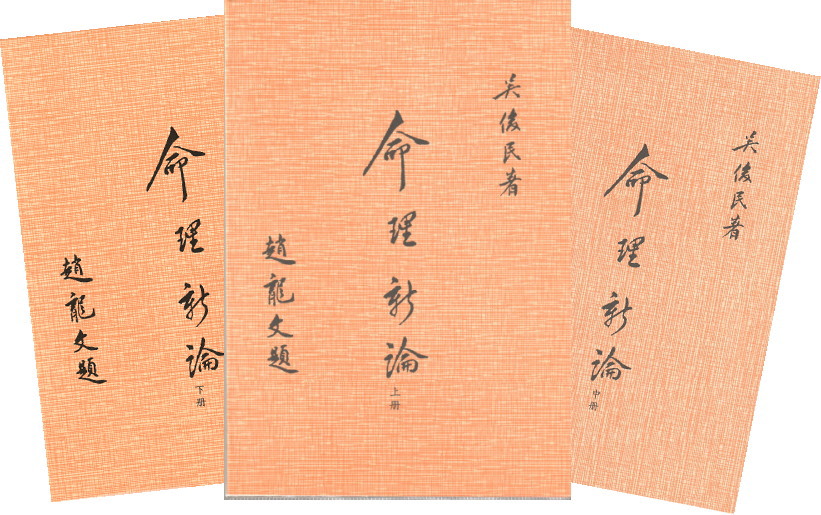 命理新論
下册
趙龍文題
吳俊民著
命理新論
上册
趙龍文題
吳俊民著
命理新論
中册